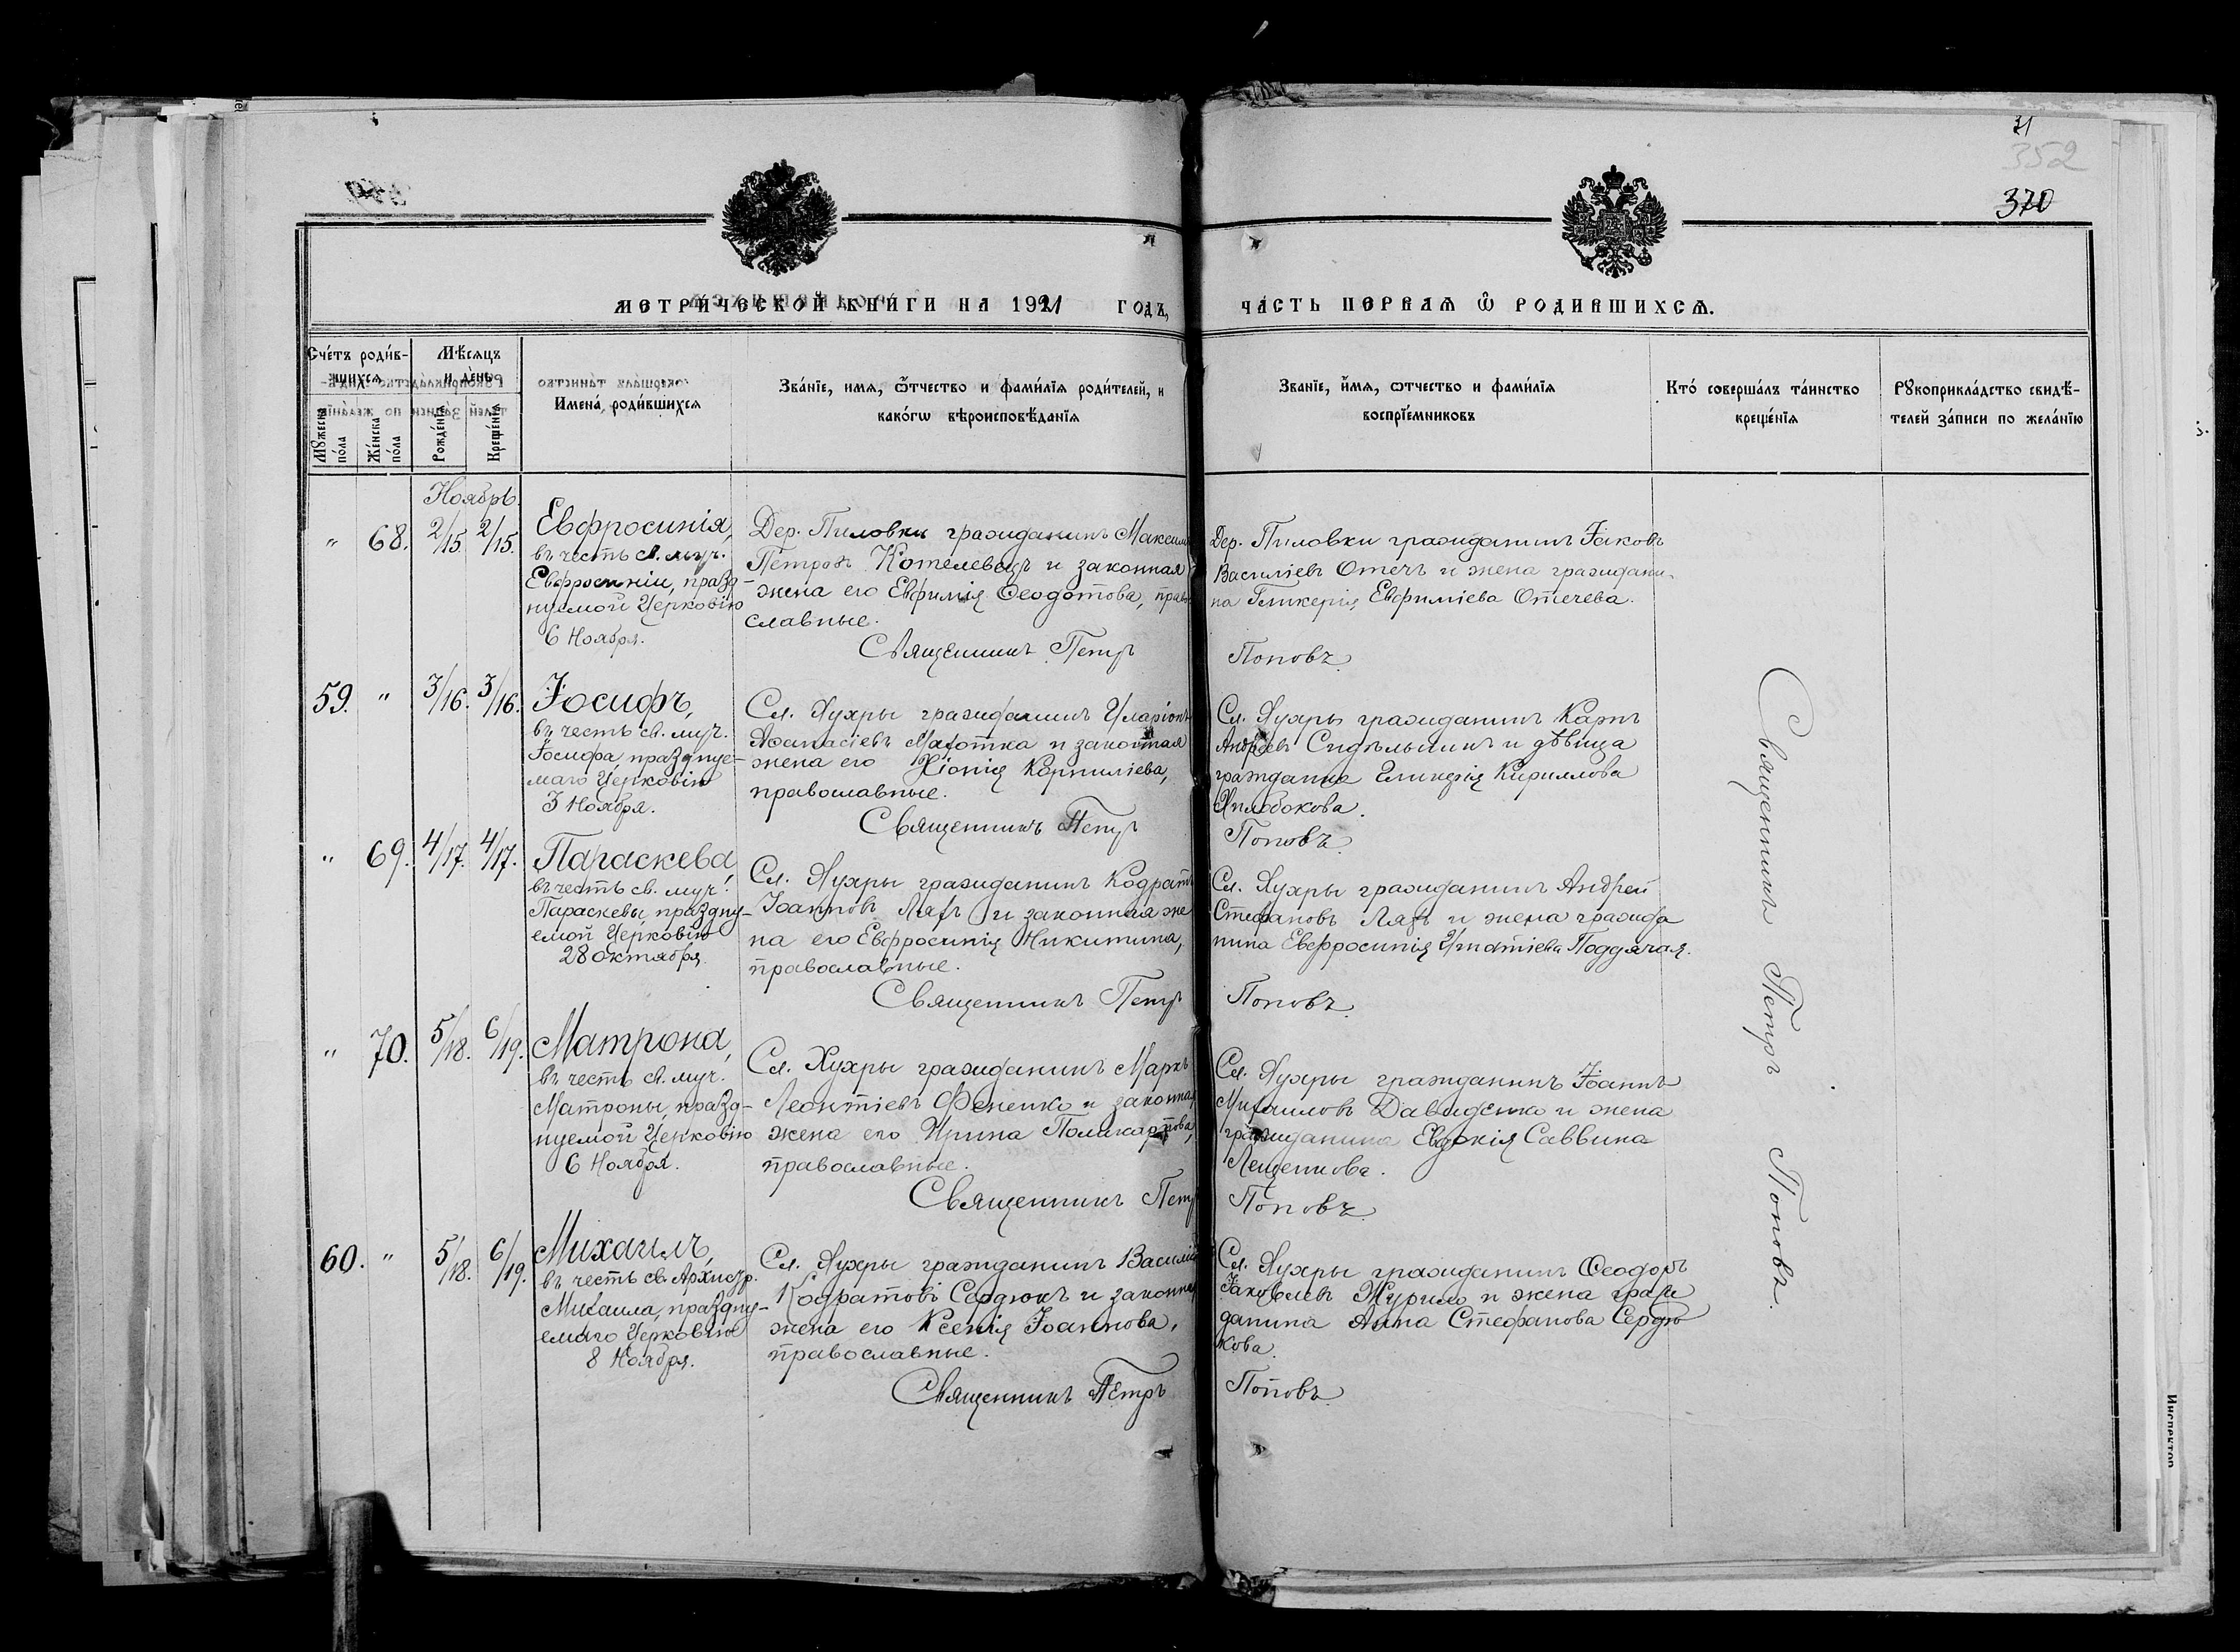 31
352
370
МЕТРИЧЕСКОЙ КНИГИ НА 1921 ГОДЪ,
ЧАСТЬ ПЕРВАЯ Ѿ РОДИВШИХСЯ.
Счетъ родившихся
Мужеска пола
Женска пола
Мѣсяцъ и день
Рожденія
Крещенія
Имена родившихся
Званіе, имя, ѿтчество и фамилія родителей, и
какогω вѣроисповѣданія
Званіе, имя, ѿтчество и фамилія
воспріемниковъ
Кто совершалъ таинство
крещенія
Рукоприкладство свидѣ-
телей записи по желанію
Ноябрь.
" 68. 2/15. 2/15.
Евфросинія,
въ честь св. муч.
Евфросиніи, празд-
нуемой Церковію
6 Ноября.
Дер. Пиловки гражданинъ Максимъ
Петровъ Котелевецъ и законная
жена его Евфимія Ѳеодотова, право
славные.
Священникъ Петръ
Дер. Пиловки гражданинъ Іаковъ
Василіевъ Отечъ и жена граждани-
на Гликерія Евфиміева Отечева.
Поповъ.
59. " 3/16. 3/16.
Іосифъ,
въ честь св. муч.
Іосифа, празднуе-
маго Церковію
3 Ноября.
Сл. Хухры гражданинъ Иларіонъ
Аѳанасіевъ Махотка и законная
жена его Хіонія Корниліева,
православные.
Священникъ Петръ
Сл. Хухры гражданинъ Карпъ
Андреевъ Сидѣльникъ и дѣвица
гражданка Гликерія Кириллова
Хилобокова.
Поповъ.
" 69. 4/17. 4/17.
Параскева,
въ честь св. муч.
Параскевы, праздну-
емой Церковію
28 Октября.
Сл. Хухры гражданинъ Кодратъ
Іоанновъ Ляхъ и законная же
на его Евфросинія Никитина,
православные.
Священникъ Петръ
Сл. Хухры гражданинъ Андрей
Стефановъ Ляхъ и жена гражда
нина Евфросинія Игнатіева Поддячая.
Поповъ.
" 70. 5/18. 6/19.
Матрона,
въ честь св. муч.
Матроны, празд-
нуемой Церковію
6 Ноября.
Сл. Хухры гражданинъ Маркъ
Леонтіевъ Фененко и законная
жена его Ирина Поликарпова,
православные.
Священникъ Петръ
Сл. Хухры гражданинъ Іоаннъ
Михаиловъ Давиденко и жена
гражданина Евдокія Саввина
Лещенкова.
Поповъ.
60. " 5/18. 6/19.
Михаилъ,
въ честь св. Архистр.
Михаила, праздну-
емаго Церковію
8 Ноября.
Сл. Хухры гражданинъ Василій
Кодратовъ Сердюкъ и законная
жена его Ксенія Іоаннова,
православные.
Священникъ Петръ
Сл. Хухры гражданинъ Ѳеодоръ
Іаковлевъ Журило и жена граж
данина Анна Стефанова Сердю
кова.
Поповъ.
Священникъ Петръ Поповъ.
Инспектор